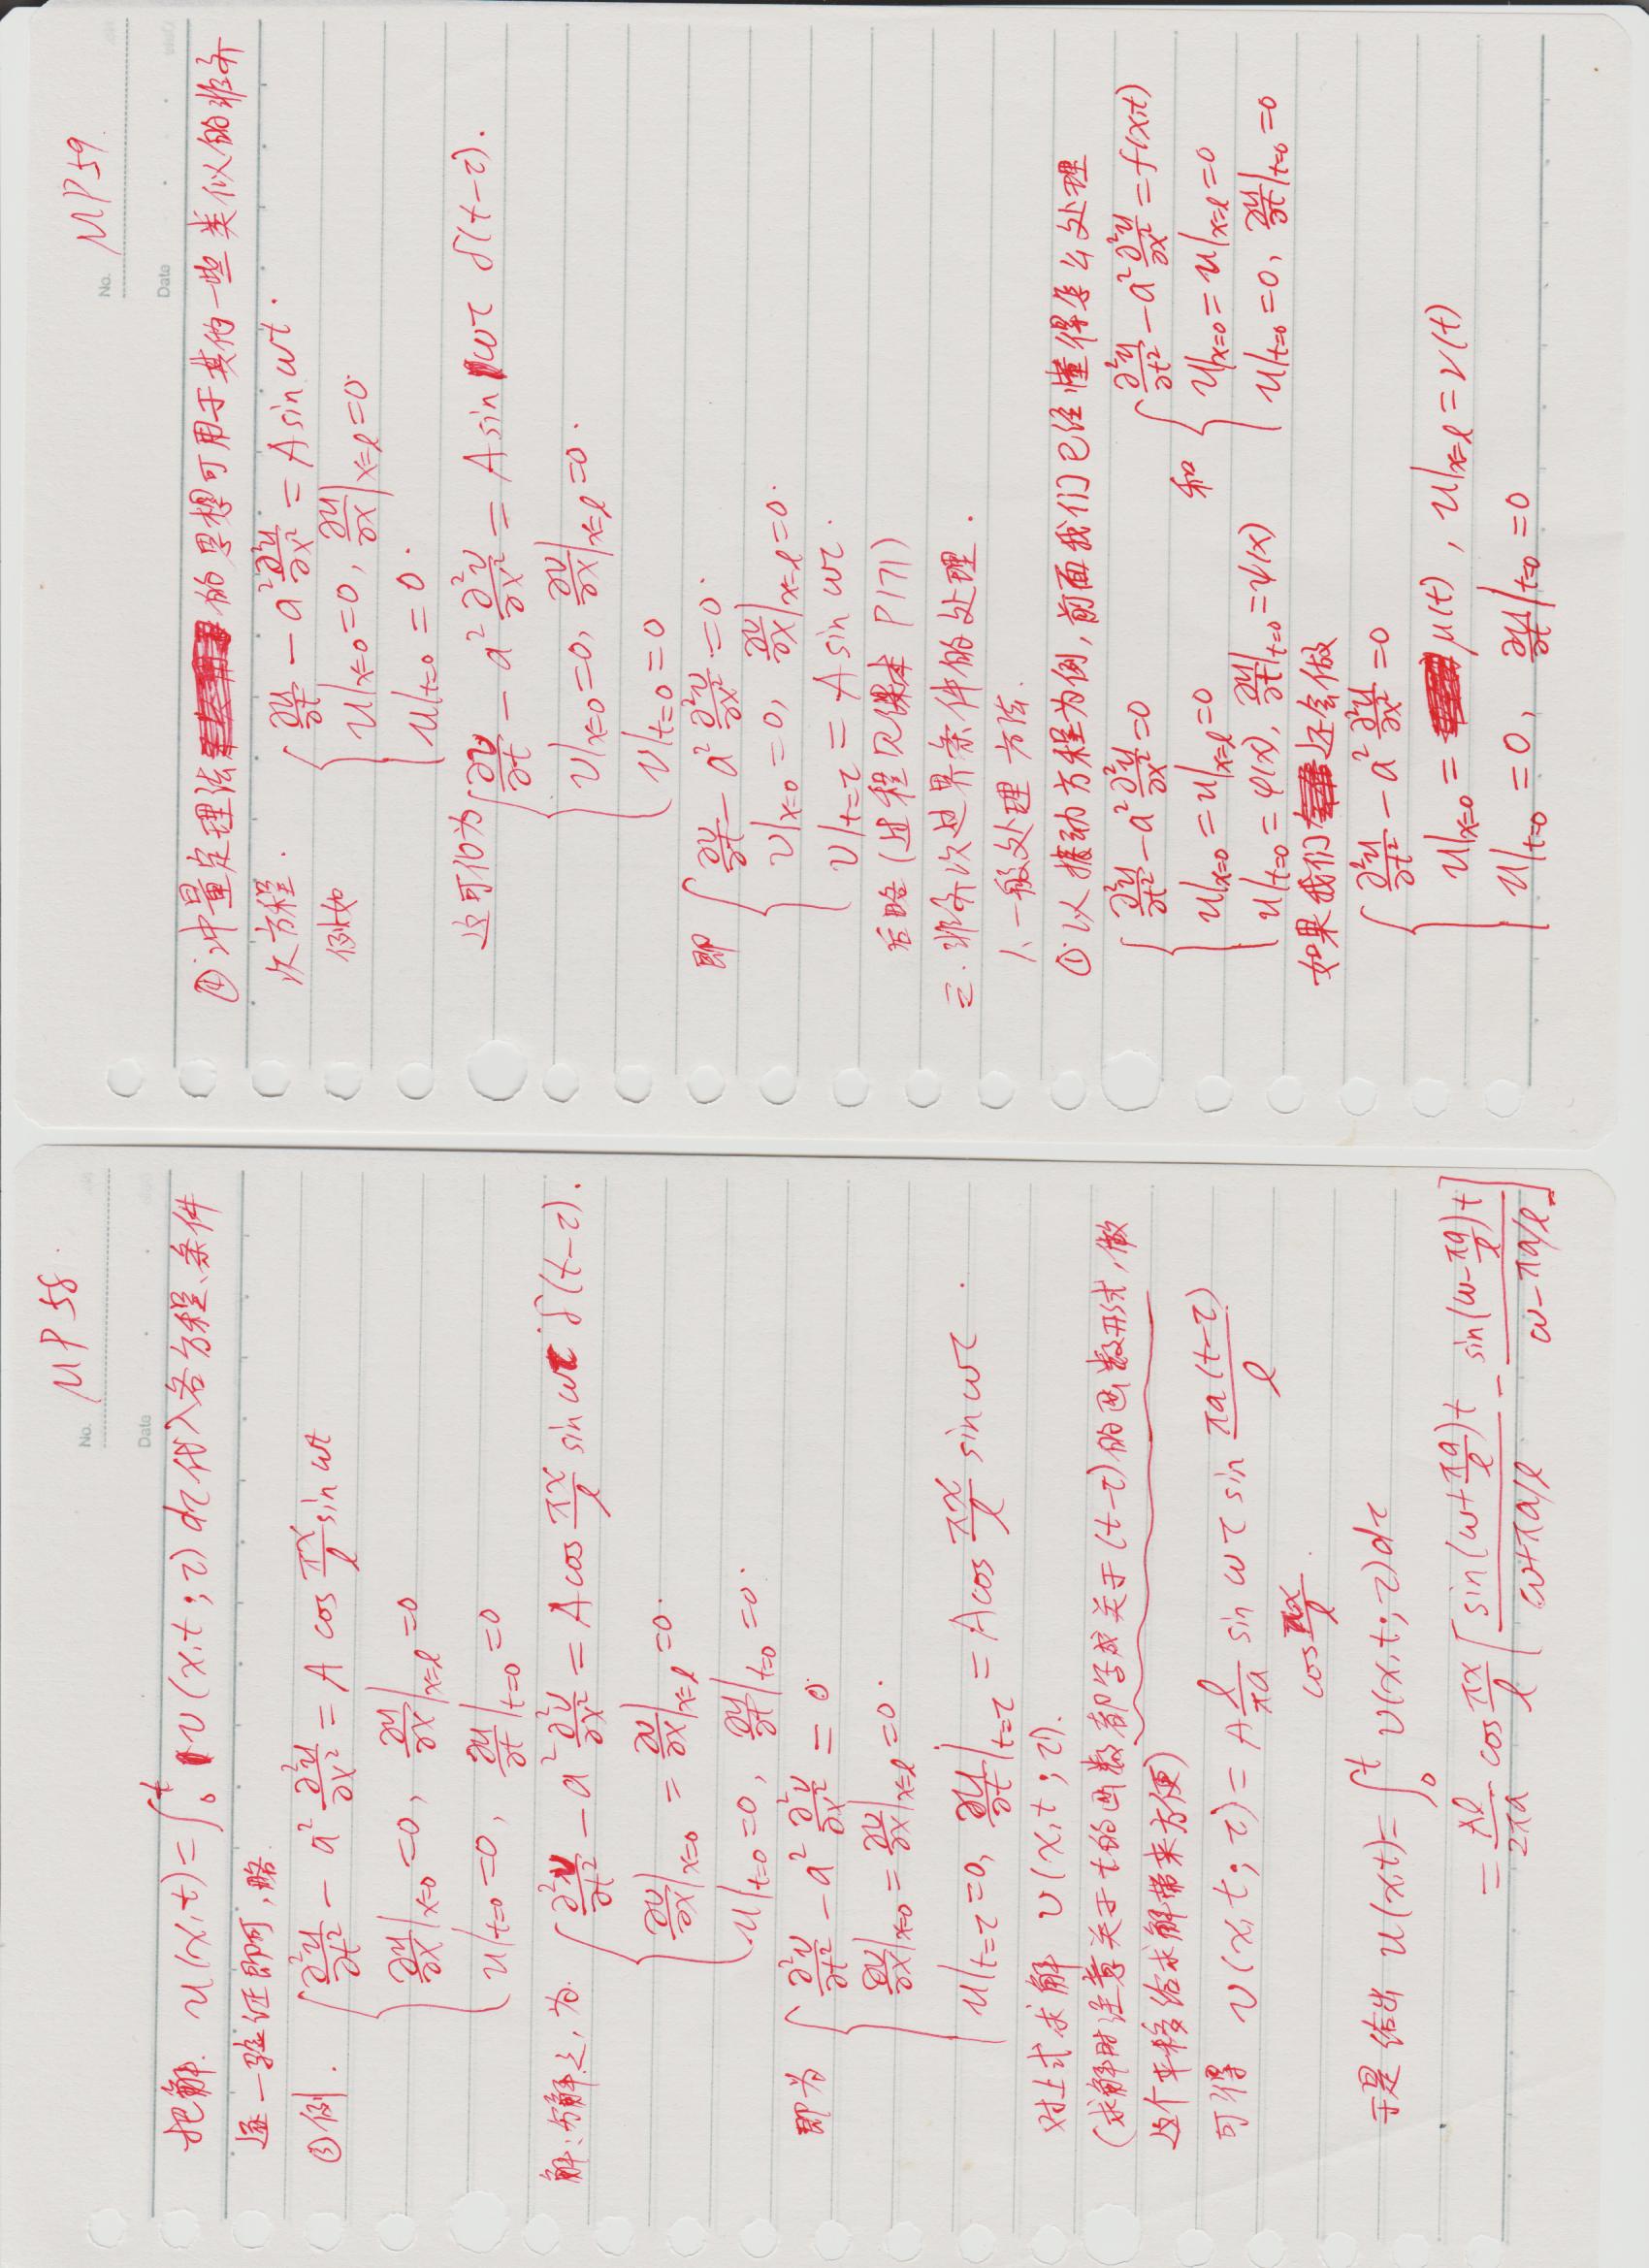 MP 58.
No.
Date
把解. u(x,t)=∫₀ᵗ v(x,t;τ)dτ代入各方程、条件
逐一验证即可,略.
③例. ∂²u/∂t² - a² ∂²u/∂x² = A cos πx/l sin ωt
∂u/∂x|x=0 =0, ∂u/∂x|x=l =0
u|t=0 =0, ∂u/∂t|t=0 =0
解:分解之,为. ∂²v/∂t² - a² ∂²v/∂x² = A cos πx/l sin ωτ δ(t-τ).
∂v/∂x|x=0 = ∂v/∂x|x=l =0.
u|t=0 =0, ∂u/∂t|t=0 =0.
即为 ∂²v/∂t² - a² ∂²v/∂x² = 0
∂v/∂x|x=0 = ∂v/∂x|x=l =0.
u|t=τ =0, ∂u/∂t|t=τ = A cos πx/l sin ωτ.
对上式求解 v(x,t;τ).
(求解时注意关于t的函数都写成关于(t-τ)的函数形式,做
这个平移给求解带来方便)
可得 v(x,t;τ)= A l/πa sin ωτ sin πa(t-τ)/l
cos πx/l.
于是给出 u(x,t)=∫₀ᵗ v(x,t;τ)dτ
= Al/2πa cos πx/l [ sin(ω+πa/l)t / ω+πa/l - sin(ω-πa/l)t / ω-πa/l ]
MP 59.
No.
Date
④冲量定理法的思想可用于其他一些类似的非齐
次方程. ∂u/∂t - a² ∂²u/∂x² = A sin ωt.
例如 u|x=0 =0, ∂u/∂x|x=l =0.
u|t=0 = 0.
这可化为 ∂v/∂t - a² ∂²v/∂x² = A sin ωτ δ(t-τ).
v|x=0 =0, ∂v/∂x|x=l =0.
v|t=0 =0
即 ∂v/∂t - a² ∂²v/∂x² =0.
v|x=0 =0, ∂v/∂x|x=l =0.
v|t=τ = A sin ωτ.
后略(过程见课本 P171)
三. 非齐次边界条件的处理.
1. 一般处理方法.
①以振动方程为例,前面我们已经懂得怎么处理
∂²u/∂t² - a² ∂²u/∂x² =0 和 ∂²u/∂t² - a² ∂²u/∂x² = f(x,t)
u|x=0 = u|x=l =0 u|x=0 = u|x=l =0
u|t=0 = φ(x), ∂u/∂t|t=0 = ψ(x) u|t=0 =0, ∂u/∂t|t=0 =0
如果我们还会做
∂²u/∂t² - a² ∂²u/∂x² =0
u|x=0 = μ(t), u|x=l = ν(t)
u|t=0 =0, ∂u/∂t|t=0 =0